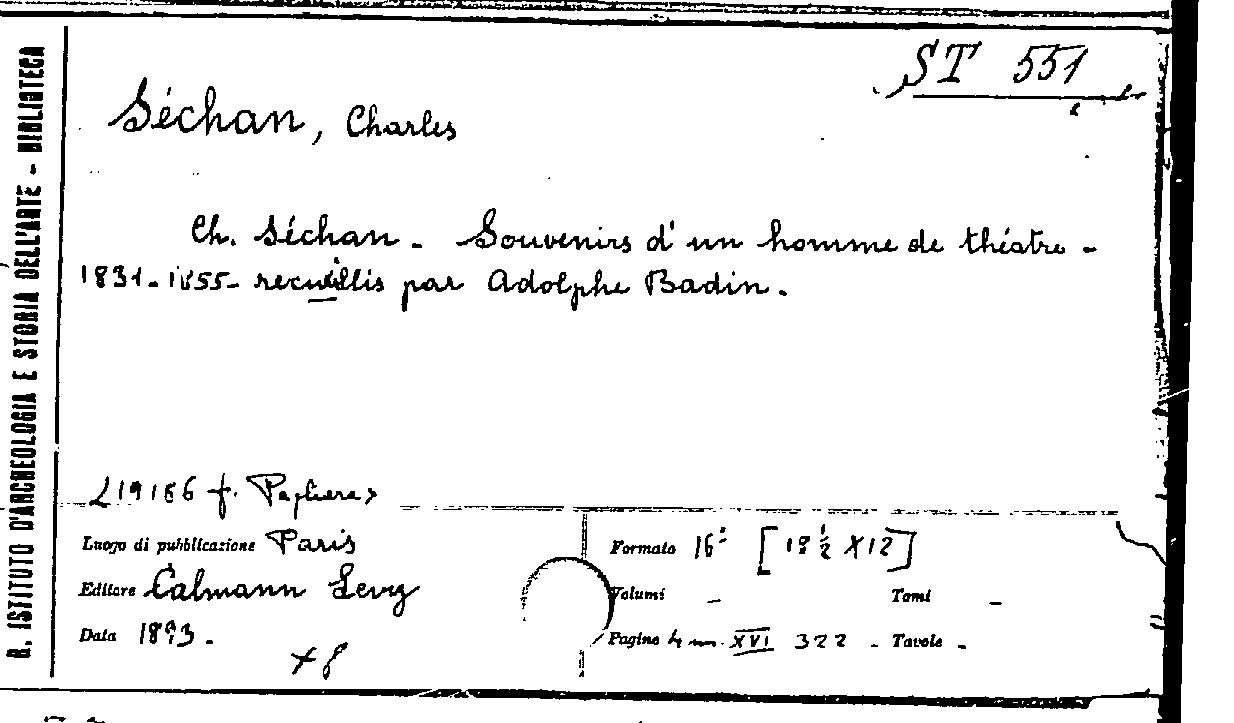 R. ISTITUTO D'ARCHEOLOGIA E STORIA DELL'ARTE - BIBLIOTECA
ST 551
Séchan, Charles
Ch. Séchan - Souvenirs d'un homme de théatre -
1831-1855- recueillis par Adolphe Badin.
Luogo di pubblicazione Paris
Formato 16° [18 ½ X12]
Editore Calmann Levy
Volumi - Tomi -
Data 1893.
Pagine XVI 322 - Tavole -